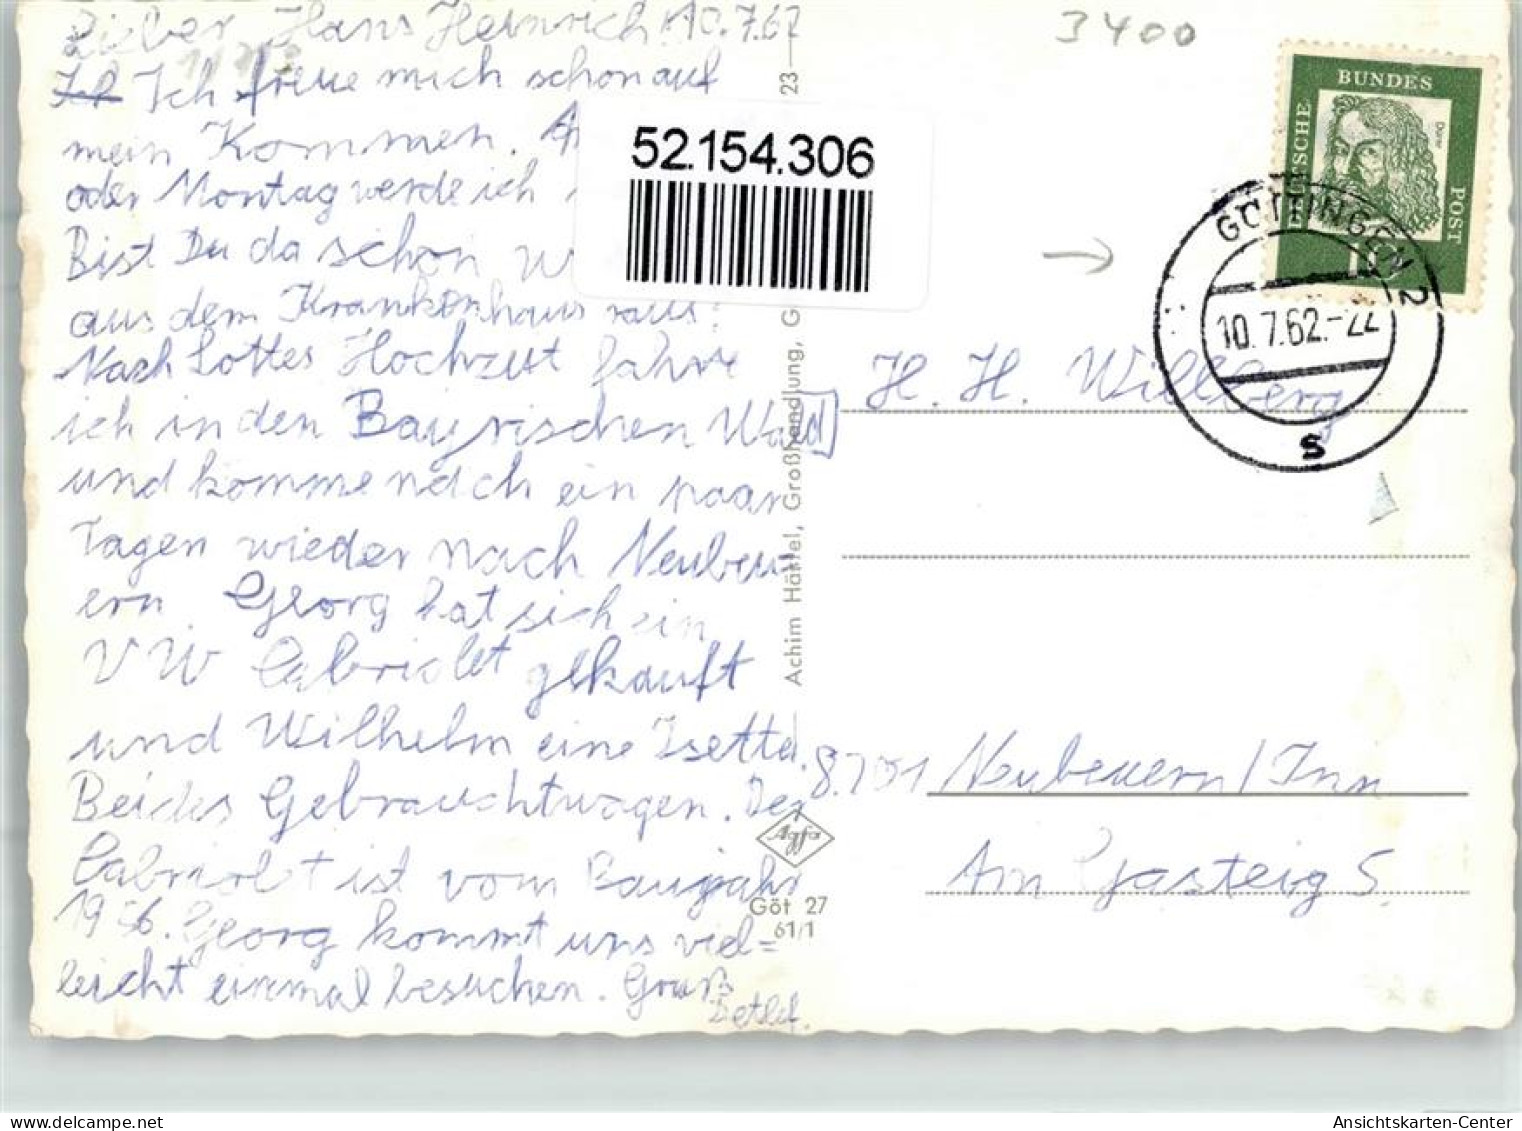 Lieber Hans Heinrich! 10.7.62
Ich freue mich schon auf
mein Kommen.
oder Montag werde ich
Bist Du da schon
aus dem Krankenhaus raus?
Nach Lottes Hochzeit fahre
ich in den Bayrischen Wald
und komme nach ein paar
Tagen wieder nach Neubeu=
ern. Georg hat sich ein
VW Cabriolet gekauft
und Wilhelm eine Isetta.
Beides Gebrauchtwagen. Der
Cabriolet ist vom Baujahr
1956. Georg kommt uns viel=
leicht einmal besuchen. Gruß
Detlef.
52.154.306
Achim Hörtel, Großhandlung, G
23
Agfa
Göt 27
61/1
3400
DEUTSCHE
BUNDES
POST
Dürer
10
GÖTTINGEN 2
10.7.62.-22
s
H. H. Willberg
8201 Neubeuern/Inn
Am Gasteig 5
Ansichtskarten-Center